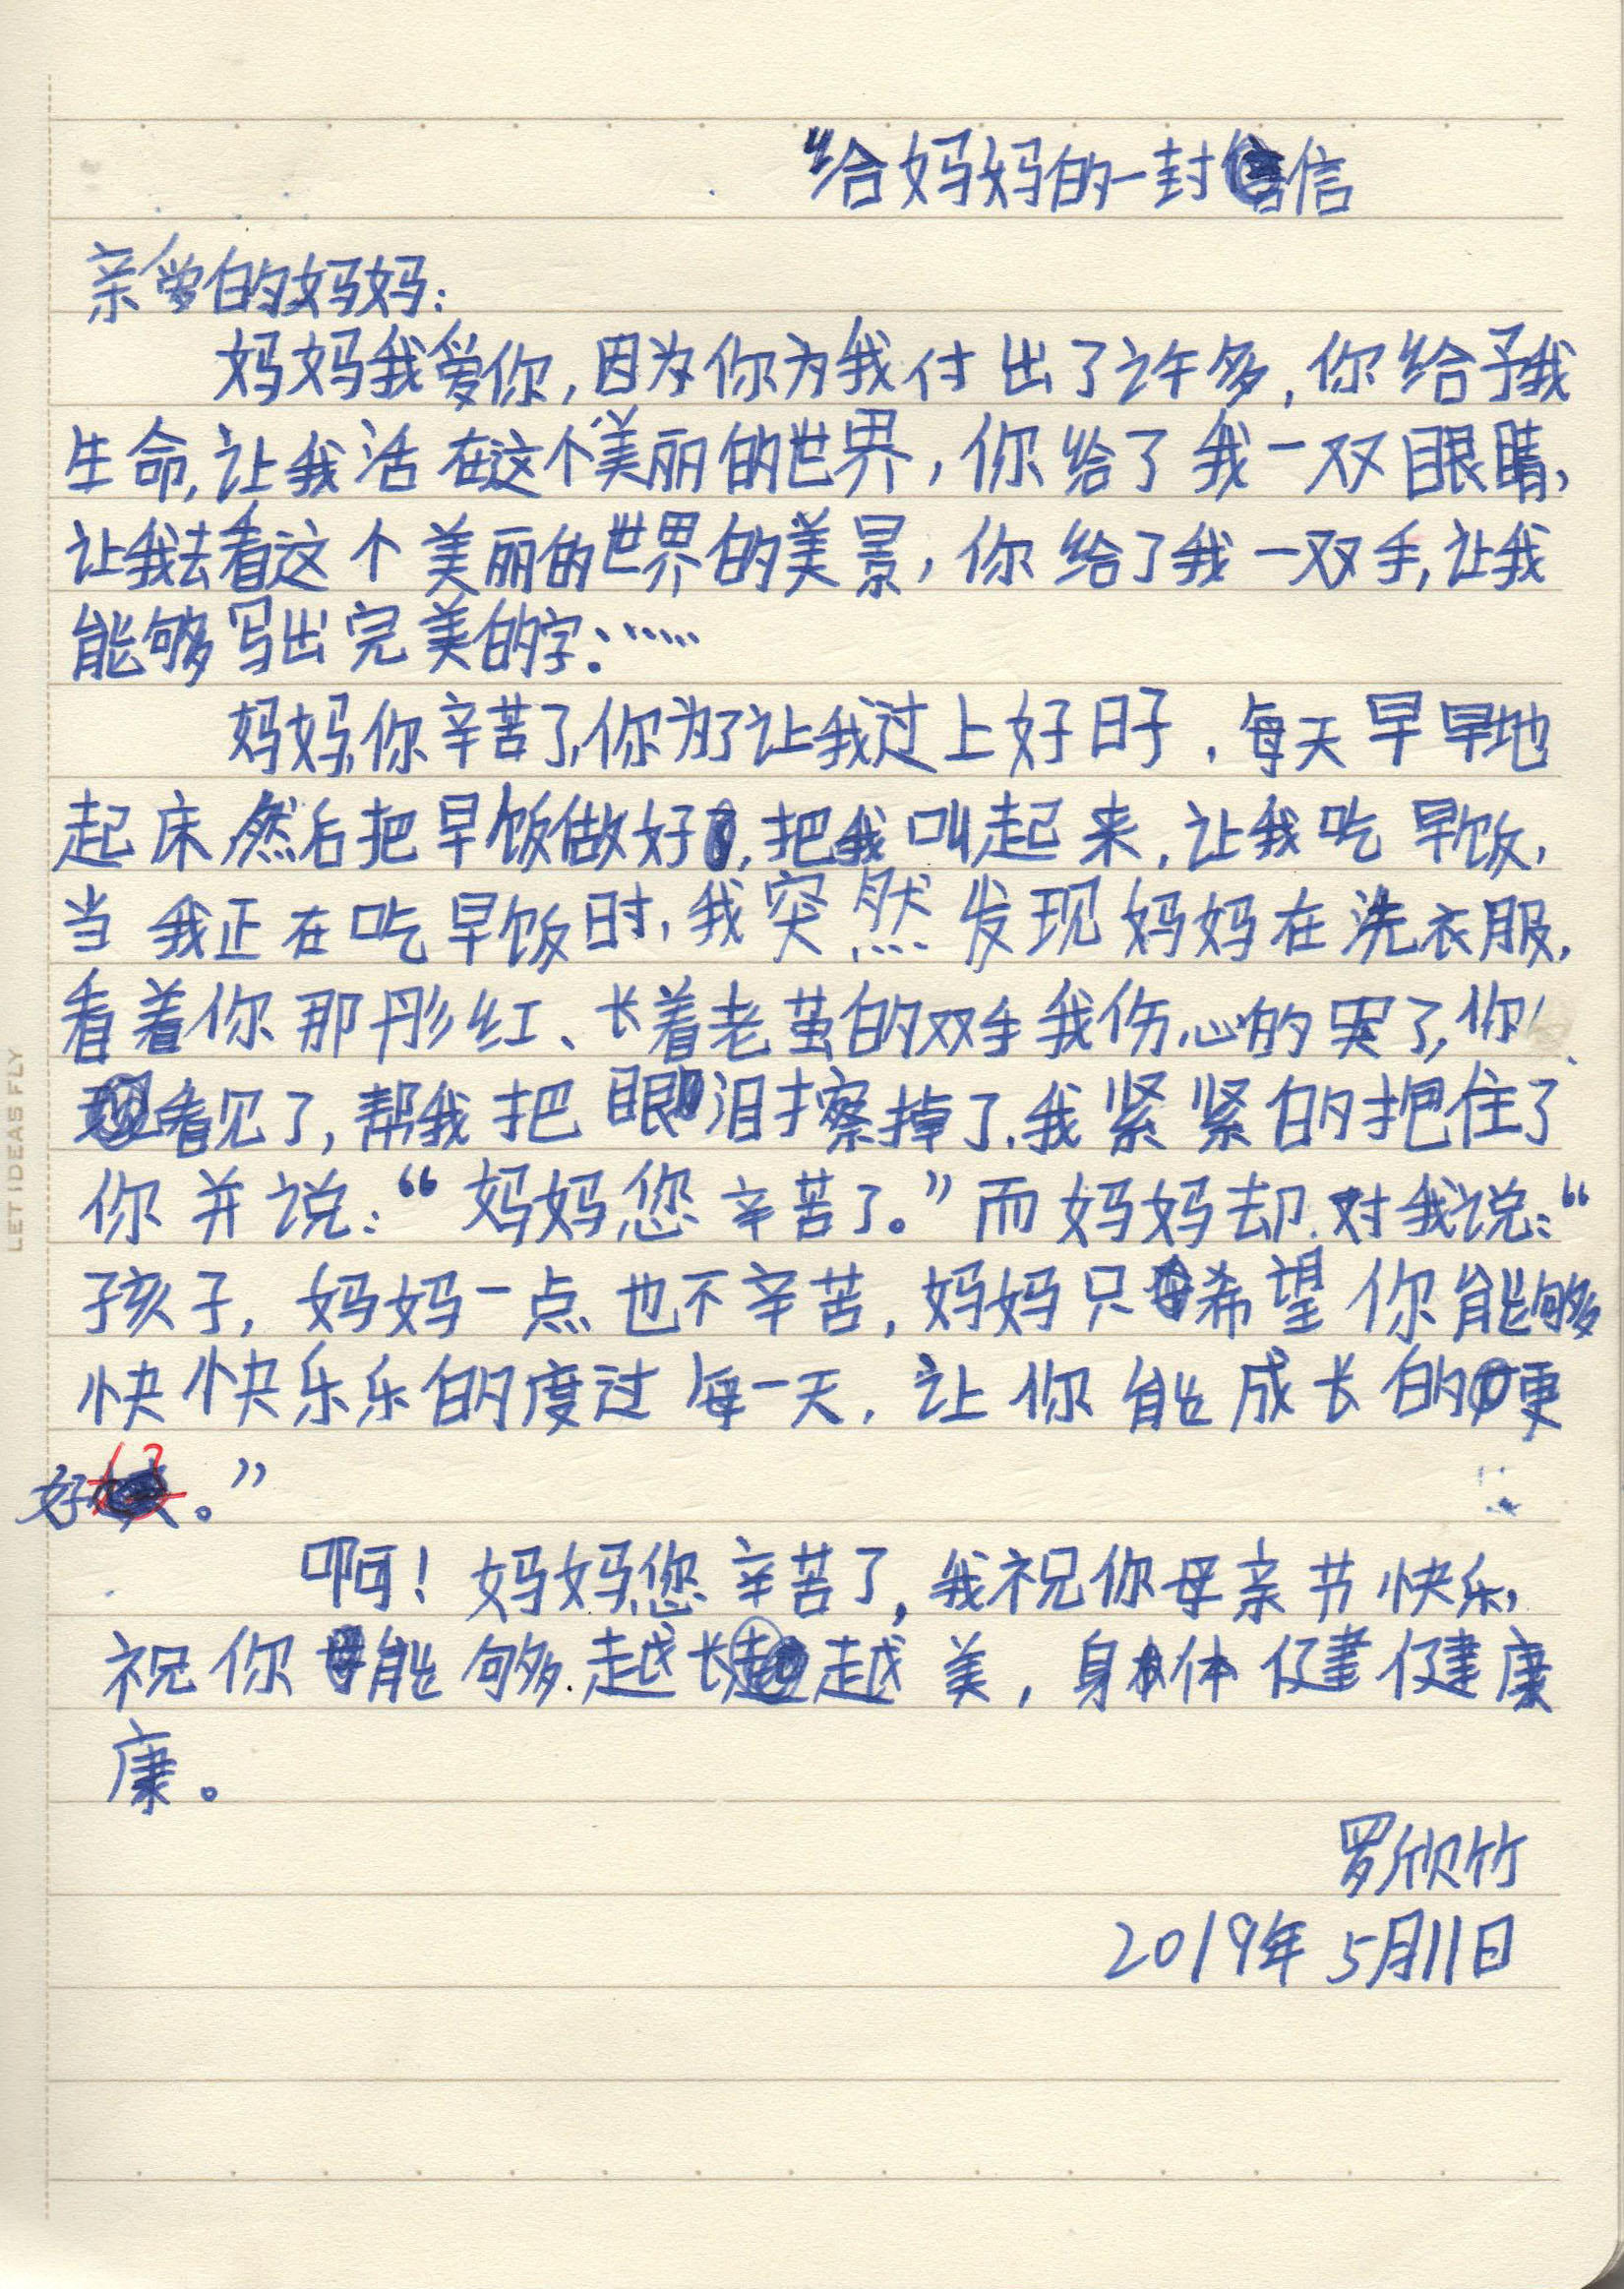 给妈妈的一封信
亲爱的妈妈:
妈妈我爱你,因为你为我付出了许多,你给予我
生命,让我活在这个美丽的世界,你给了我一双眼睛,
让我去看这个美丽的世界的美景,你给了我一双手,让我
能够写出完美的字:……
妈妈,你辛苦了,你为了让我过上好日子,每天早早地
起床然后把早饭做好,把我叫起来,让我吃早饭,
当我正在吃早饭时,我突然发现妈妈在洗衣服,
看着你那彤红、长着老茧的双手我伤心的哭了,你
看见了,帮我把眼泪擦掉了.我紧紧的抱住了
你并说:“妈妈您辛苦了。”而妈妈却对我说:“
孩子,妈妈一点也不辛苦,妈妈只希望你能够
快快乐乐的度过每一天,让你能成长的更
好。”
啊!妈妈,您辛苦了,我祝你母亲节快乐,
祝你能够越长越美,身体健健康
康。
罗欣竹
2019年5月11日
LET IDEAS FLY